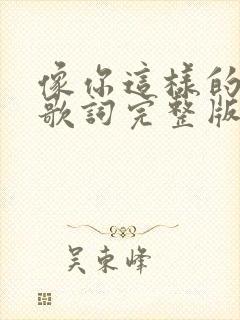 像你這樣的
歌詞完整版
吳東峰